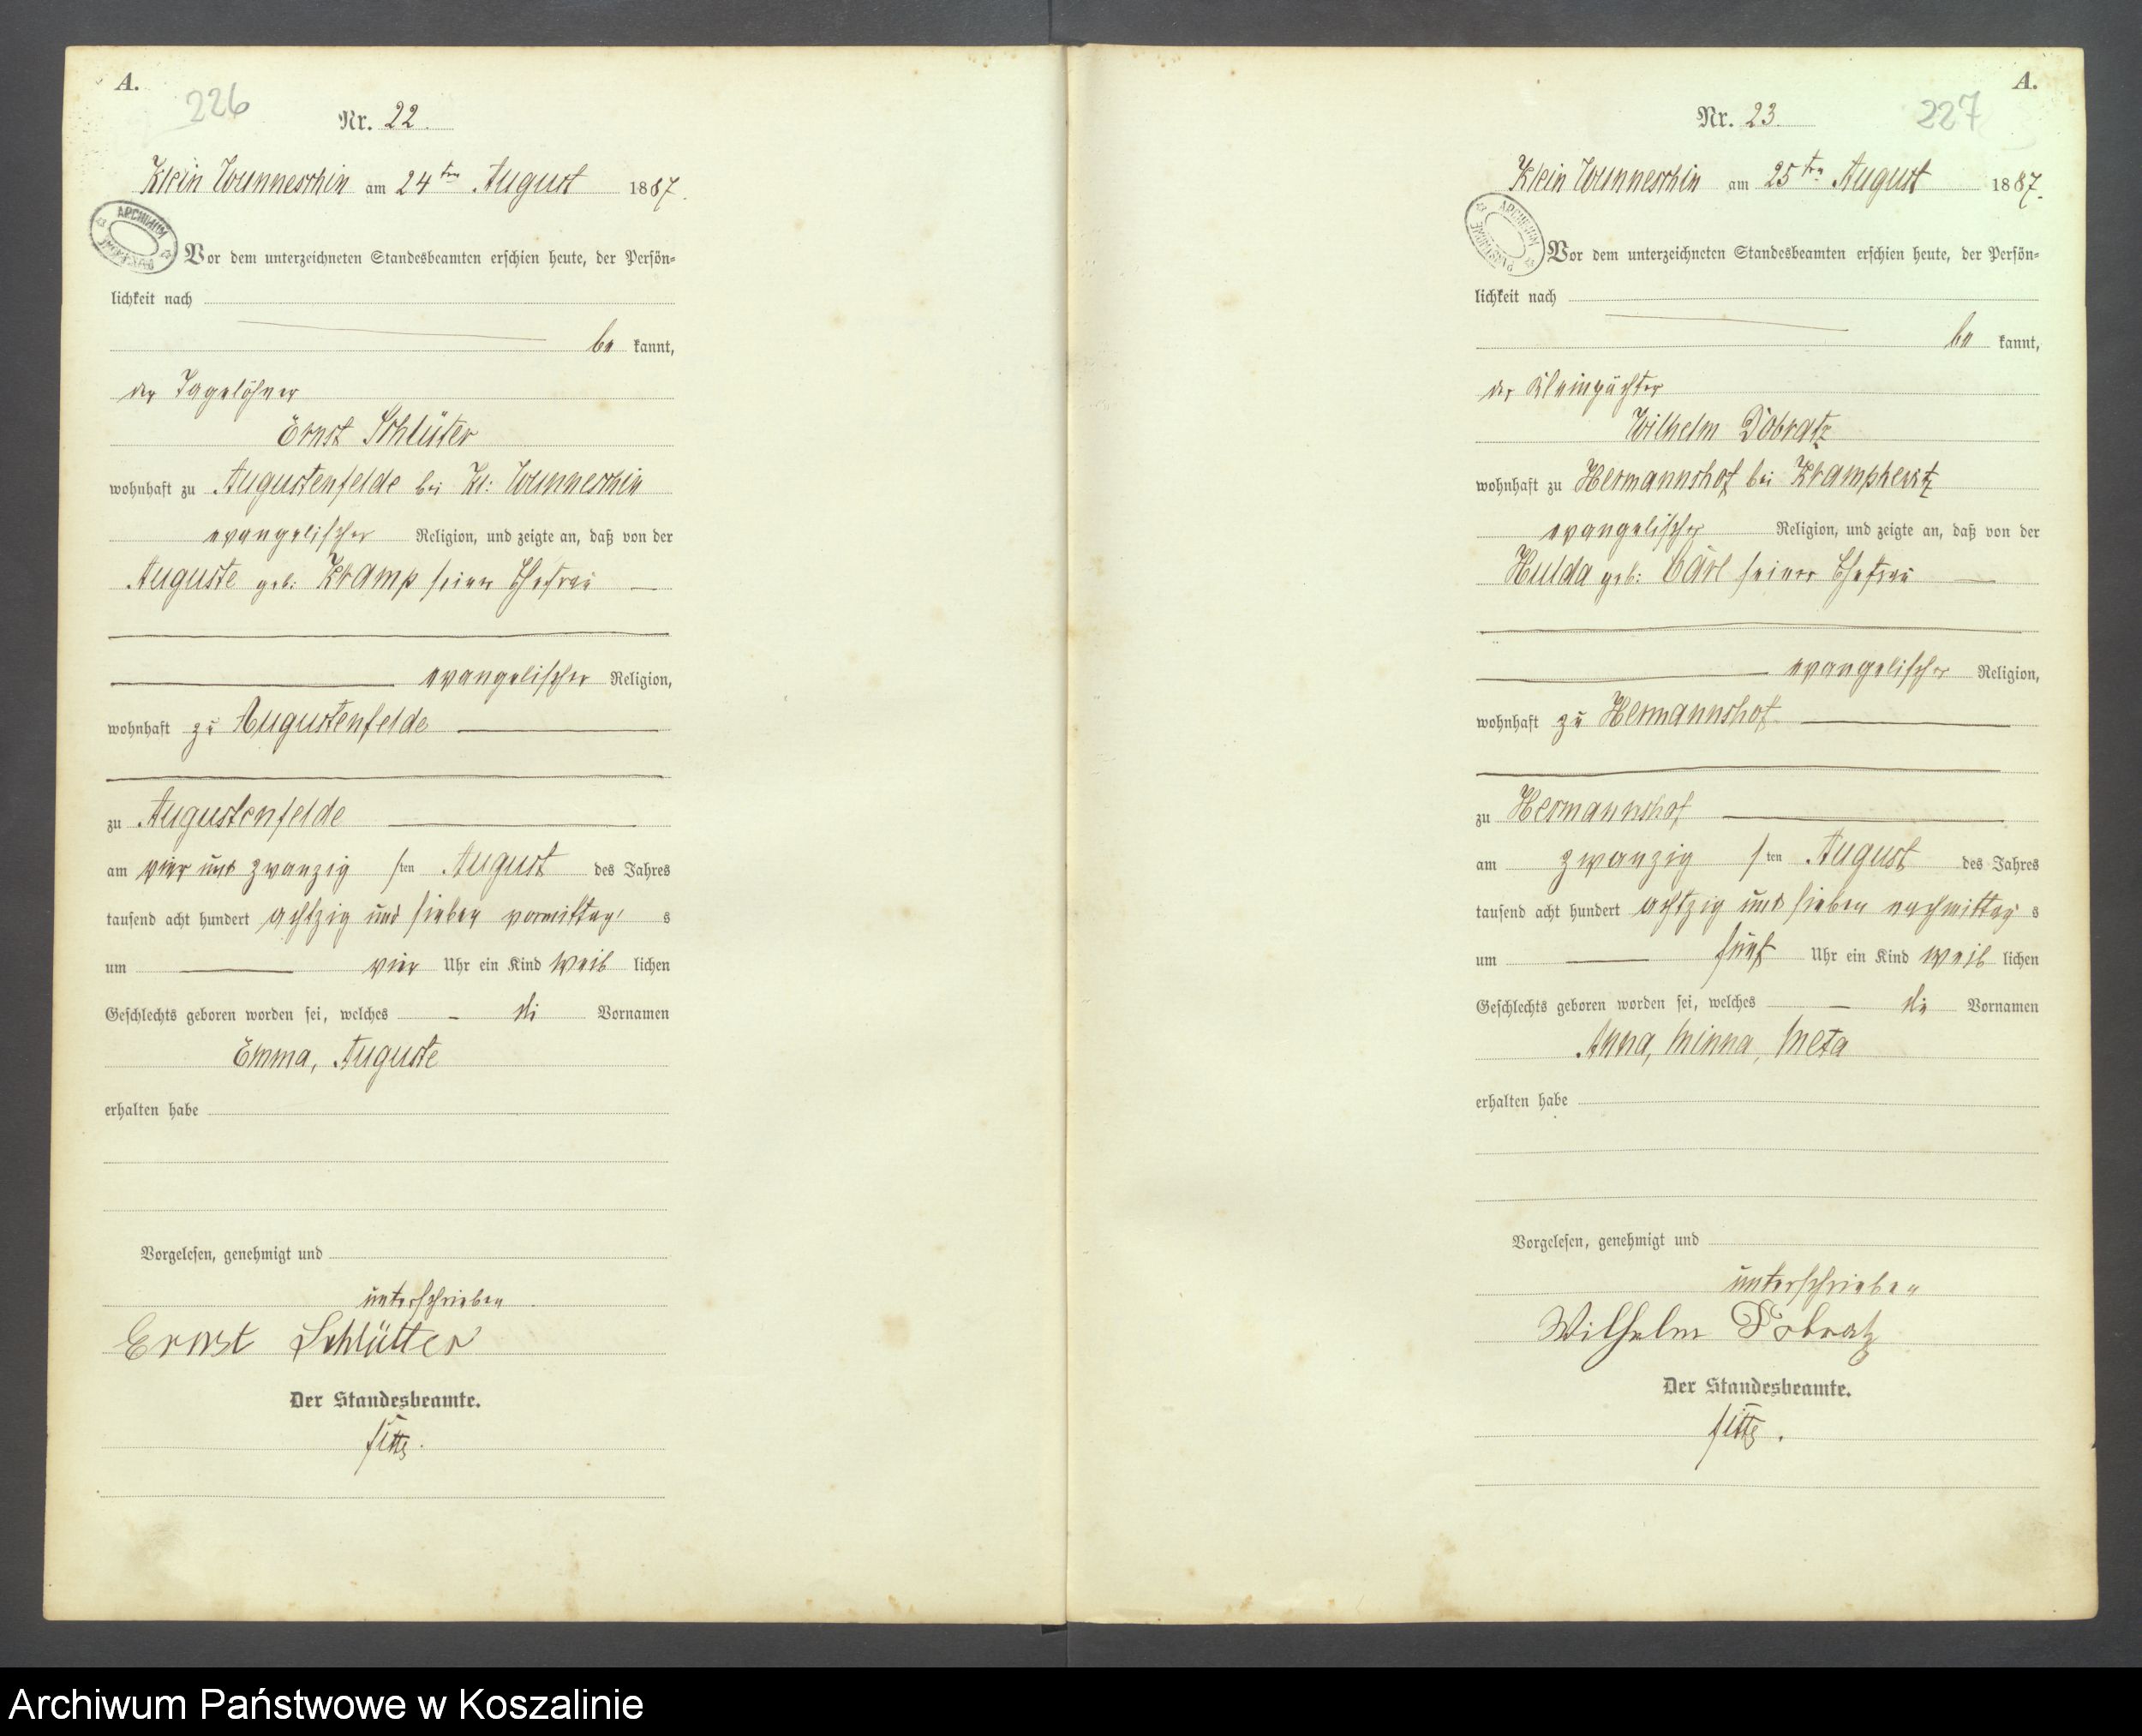 A.
226
Nr. 22.
Klein Wunneschin am 24ten August 1887.
ARCHIWUM
Vor dem unterzeichneten Standesbeamten erschien heute, der Persön-
lichkeit nach
be kannt,
der Tagelöhner
Ernst Schlüter
wohnhaft zu Augustenfelde bei Kl: Wunneschin
evangelischer Religion, und zeigte an, daß von der
Auguste geb: Kramp seiner Ehefrau
evangelischer Religion,
wohnhaft zu Augustenfelde
zu Augustenfelde
am vier und zwanzig sten August des Jahres
tausend acht hundert achtzig und sieben vormittag s
um vier Uhr ein Kind weib lichen
Geschlechts geboren worden sei, welches die Vornamen
Emma, Auguste
erhalten habe
Vorgelesen, genehmigt und
unterschrieben
Ernst Schlütter
Der Standesbeamte.
A.
227
Nr. 23.
Klein Wunneschin am 25ten August 1887.
ARCHIWUM
Vor dem unterzeichneten Standesbeamten erschien heute, der Persön-
lichkeit nach
be kannt,
der Kleinpächter
Wilhelm Dobratz
wohnhaft zu Hermannshof bei Krampkewitz
evangelischer Religion, und zeigte an, daß von der
Hulda geb: Carl seiner Ehefrau
evangelischer Religion,
wohnhaft zu Hermannshof
zu Hermannshof
am zwanzig sten August des Jahres
tausend acht hundert achtzig und sieben nachmittag s
um fünf Uhr ein Kind weib lichen
Geschlechts geboren worden sei, welches die Vornamen
Anna, Minna, Meta
erhalten habe
Vorgelesen, genehmigt und
unterschrieben
Wilhelm Dobratz
Der Standesbeamte.
Archiwum Państwowe w Koszalinie